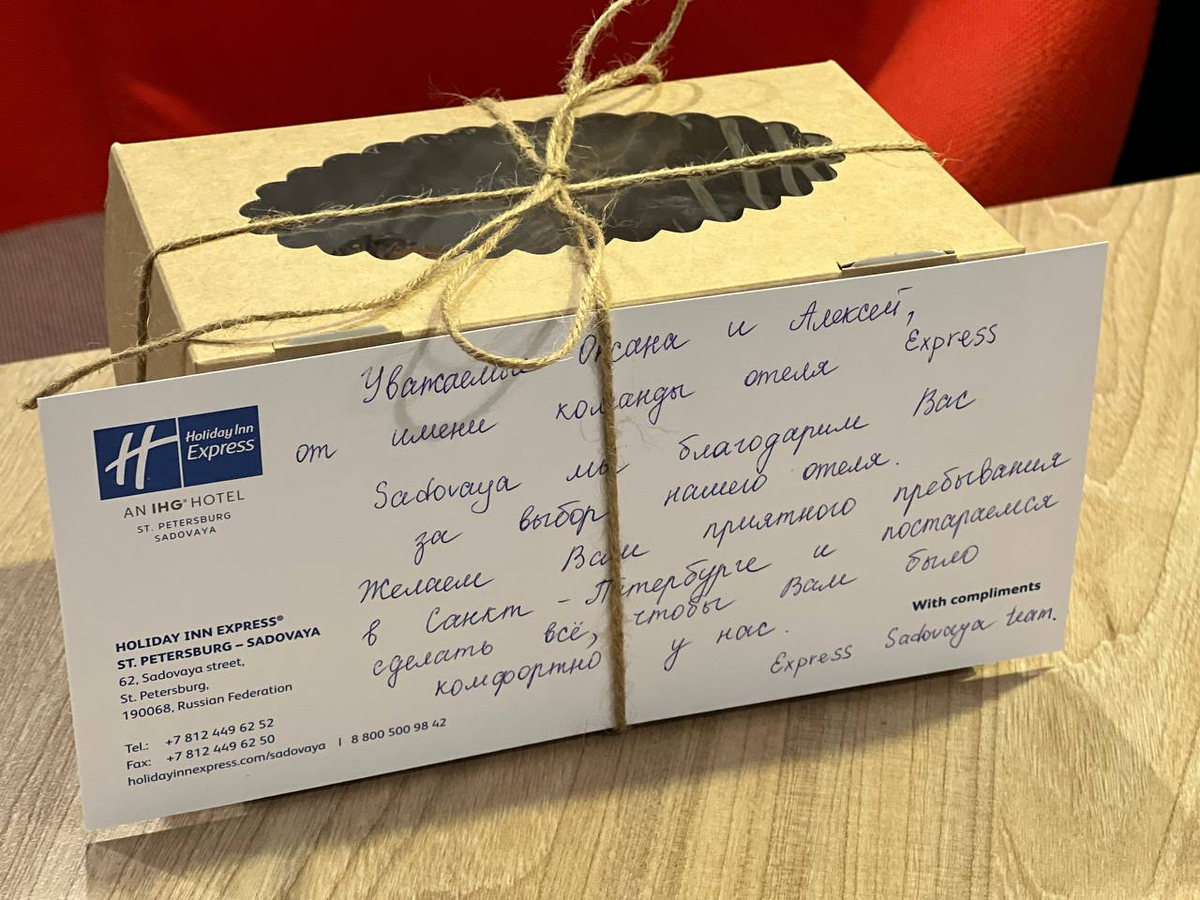 Уважаемые Оксана и Алексей,
от имени команды отеля Express
Sadovaya мы благодарим Вас
за выбор нашего отеля.
Желаем Вам приятного пребывания
в Санкт-Петербурге и постараемся
сделать всё, чтобы Вам было
комфортно у нас.
With compliments
Express Sadovaya team.
H Holiday Inn
Express
AN IHG® HOTEL
ST. PETERSBURG
SADOVAYA
HOLIDAY INN EXPRESS®
ST. PETERSBURG – SADOVAYA
62, Sadovaya street,
St. Petersburg,
190068, Russian Federation
Tel.: +7 812 449 62 52
Fax: +7 812 449 62 50
holidayinnexpress.com/sadovaya | 8 800 500 98 42